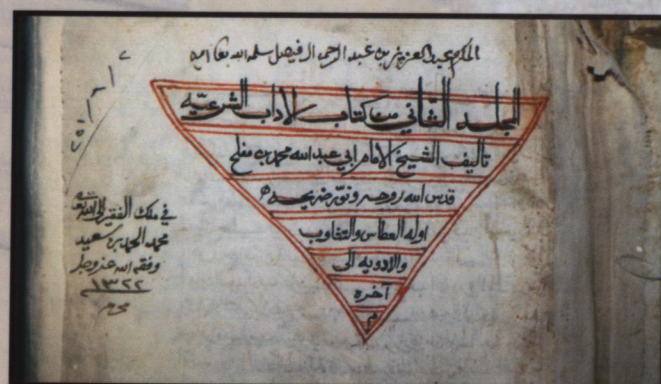 المكرم عبد العزيز بن عبد الرحمن الفيصل سلمه الله تعالى امين
الجلد الثاني من كتاب الاداب الشرعيه
تاليف الشيخ الامام ابي عبد الله محمد بن مفلح
قدس الله روحه ونور ضريحه
اوله العطاس والتثاوب
والادويه الى
آخره
م
في ملك الفقير الى الله تعالى
محمد الحمد بن سعيد
وفقه الله عز وجل
١٣٢٢